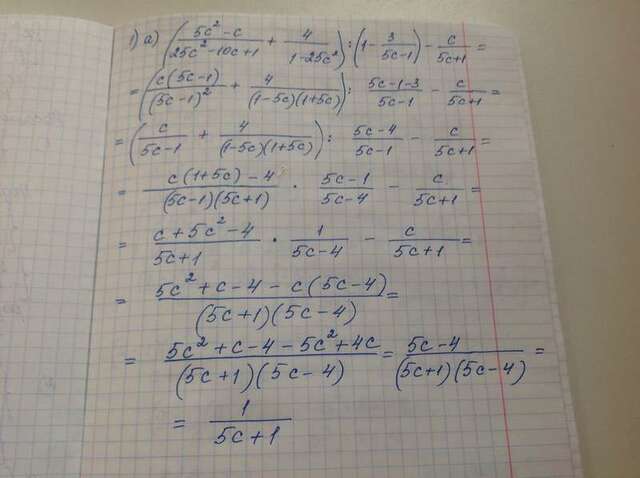 1) а) ((5c² - c)/(25c² - 10c + 1) + 4/(1 - 25c²)) : (1 - 3/(5c - 1)) - c/(5c + 1) =
= (c(5c - 1)/(5c - 1)² + 4/((1 - 5c)(1 + 5c))) : (5c - 1 - 3)/(5c - 1) - c/(5c + 1) =
= (c/(5c - 1) + 4/((1 - 5c)(1 + 5c))) : (5c - 4)/(5c - 1) - c/(5c + 1) =
= (c(1 + 5c) - 4)/((5c - 1)(5c + 1)) · (5c - 1)/(5c - 4) - c/(5c + 1) =
= (c + 5c² - 4)/(5c + 1) · 1/(5c - 4) - c/(5c + 1) =
= (5c² + c - 4 - c(5c - 4))/((5c + 1)(5c - 4)) =
= (5c² + c - 4 - 5c² + 4c)/((5c + 1)(5c - 4)) = (5c - 4)/((5c + 1)(5c - 4)) =
= 1/(5c + 1)